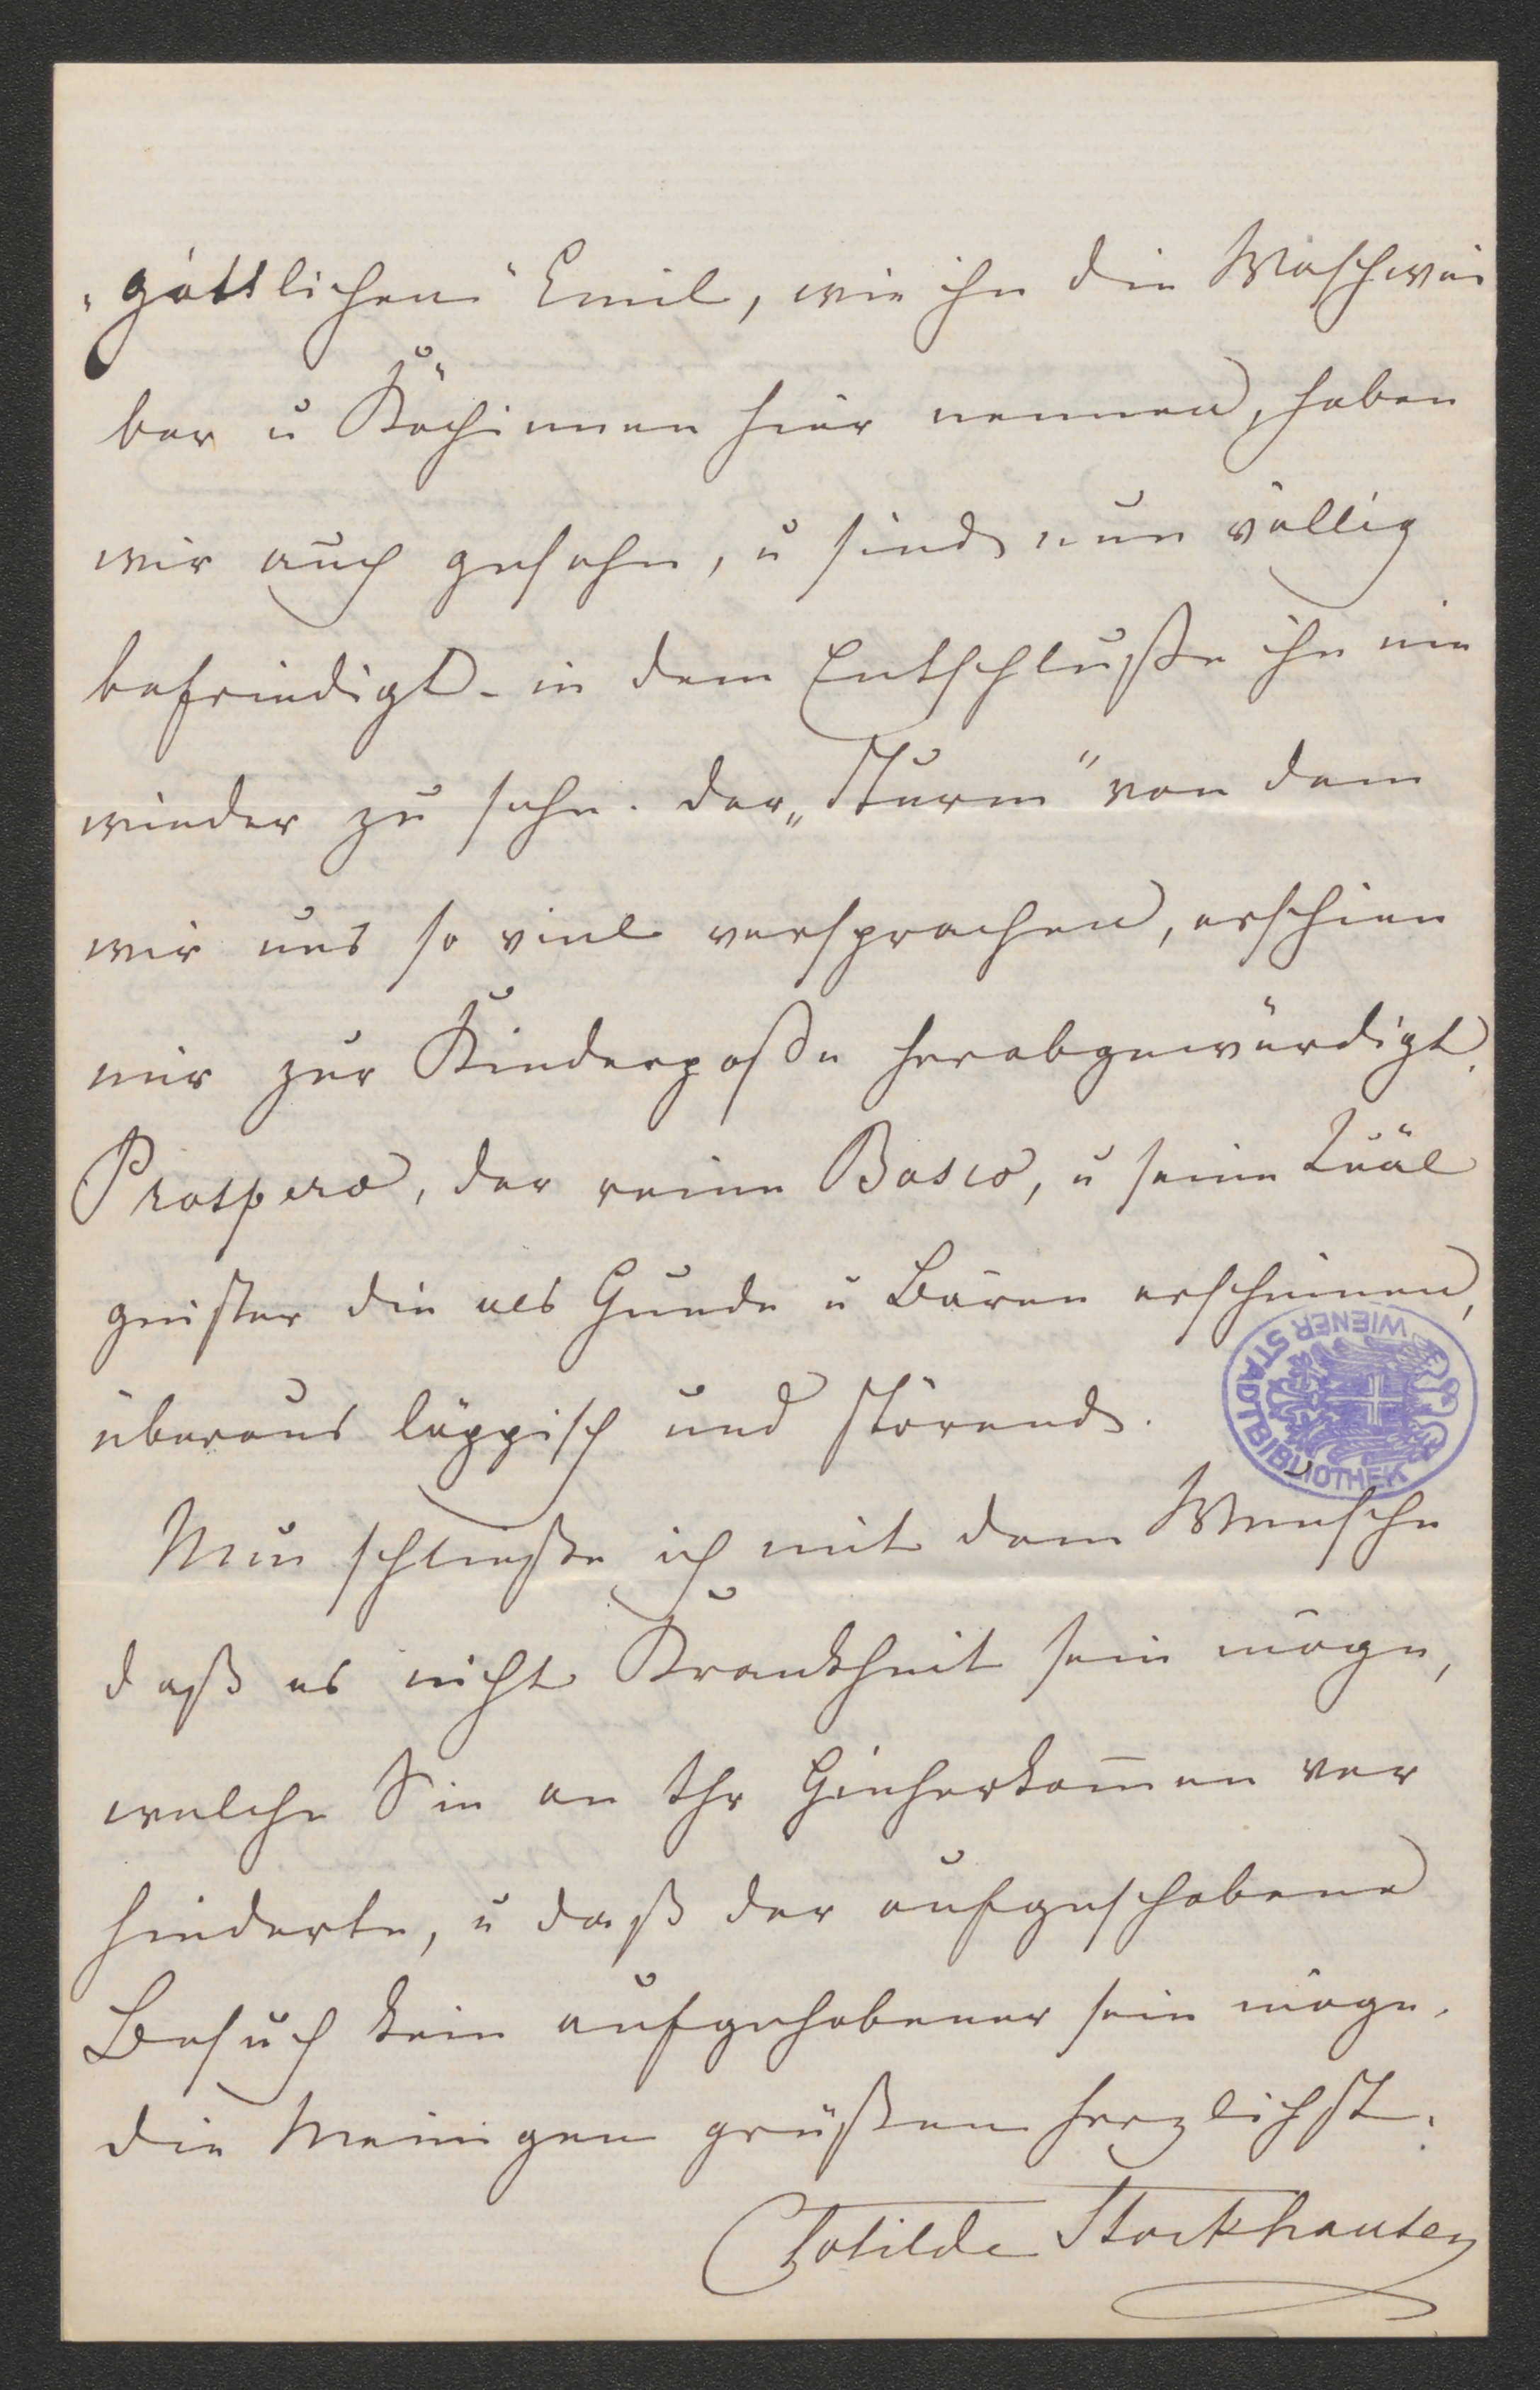 „göttlichen" Emil, wie ihn die Waschwei
ber u Köchinnen hier nennen, haben
wir auch gesehn, u sind nun völlig
befriedigt - in dem Entschluße ihn nie
wieder zu sehn. Der „Sturm" von dem
wir uns so viel versprachen, erschien
mir zur Kinderposse herabgewürdigt.
Prospero, der reine Bosco, u seine Quäl
geister die als Hunde u Bären erscheinen,
überaus läppisch und störend.
Nun schließe ich mit dem Wunsche
daß es nicht Krankheit sein möge,
welche Sie an Ihr Hieherkom̅en ver
hinderte, u daß der aufgeschobene
Besuch kein aufgehobener sein möge.
Die Meinigen grüßen herzlichst.
Clotilde Stockhausen
WIENER STADTBIBLIOTHEK